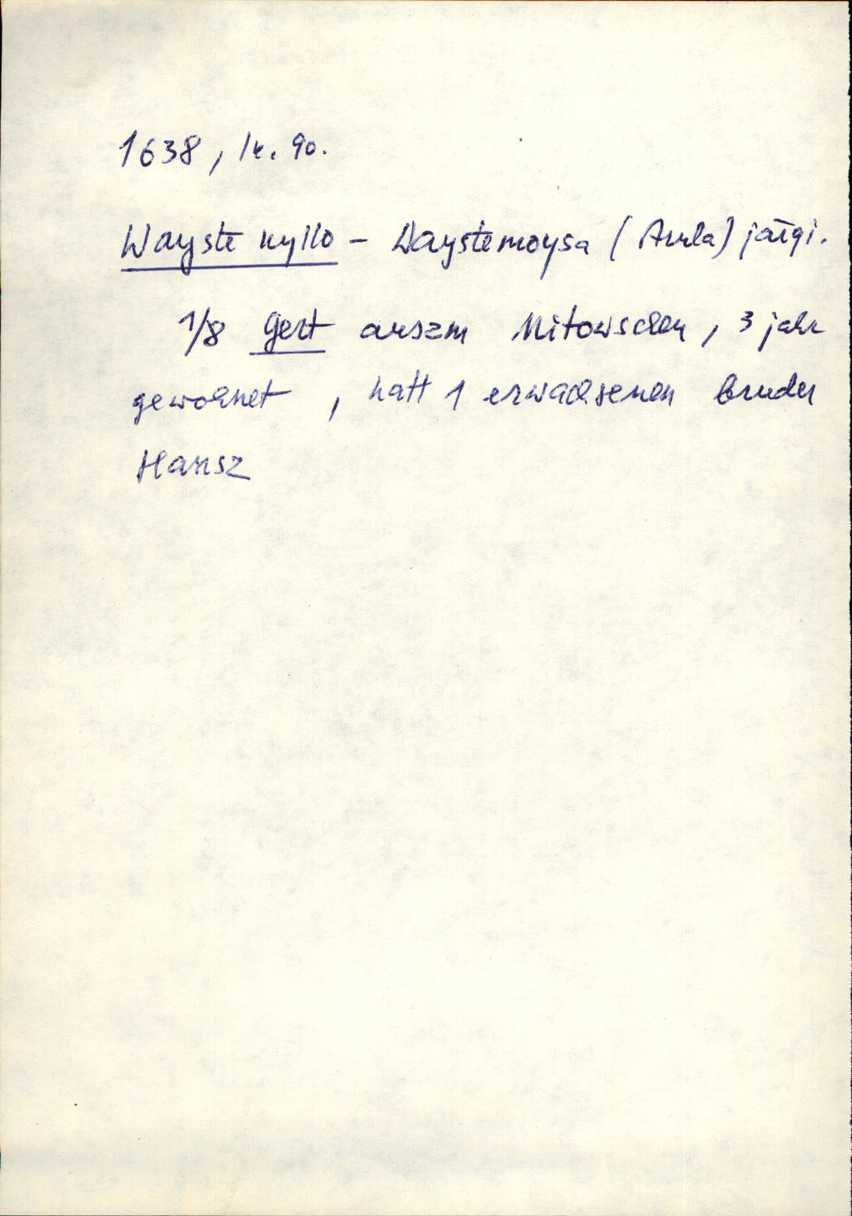 1638, lk. 90.
Wayste kyllo – Waystemoysa (Aula) järgi.
1/8 Gert auszm Mitowschen, 3 jahr
gewohnet, hatt 1 erwachsenen bruder
Hansz